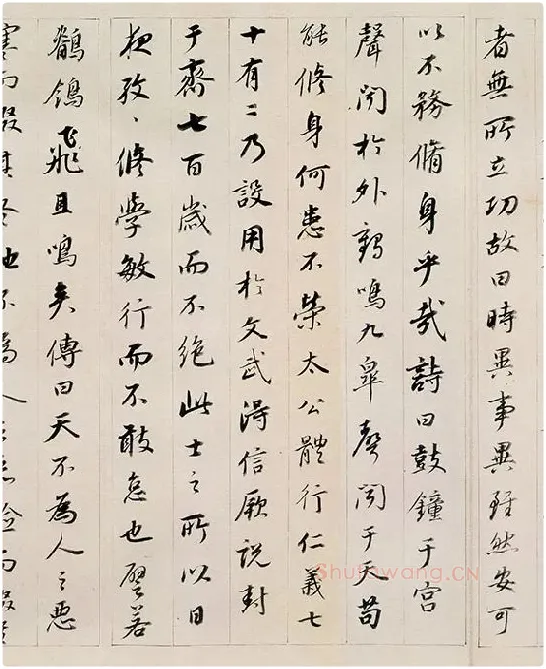 者無所立功故曰時異事異雖然安可
以不務脩身乎哉詩曰鼓鐘于宮
聲聞於外鶴鳴九皐聲聞于天苟
能修身何患不榮太公體行仁義七
十有二乃設用於文武得信厥説封
于齋七百歲而不絶此士之所以日
夜孜〻修學敏行而不敢怠也譬若
鶺鴒飛且鳴矣傳曰天不為人之惡
Shufawang.CN